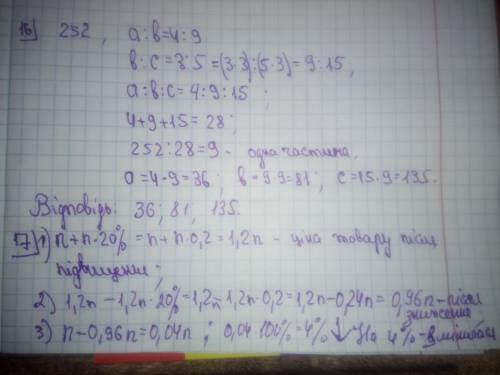 16) 252, a:b=4:9
b:c=3:5=(3·3):(5·3)=9:15,
a:b:c=4:9:15;
4+9+15=28;
252:28=9 - одна частина.
a=4·9=36; b=9·9=81; c=15·9=135.
Відповідь: 36; 81; 135.
17) 1) n+n·20%=n+n·0,2=1,2n - ціна товару після
підвищення;
2) 1,2n-1,2n·20%=1,2n-1,2n·0,2=1,2n-0,24n=0,96n-після
зниження
3) n-0,96n=0,04n; 0,04·100%=4%↓ На 4%-